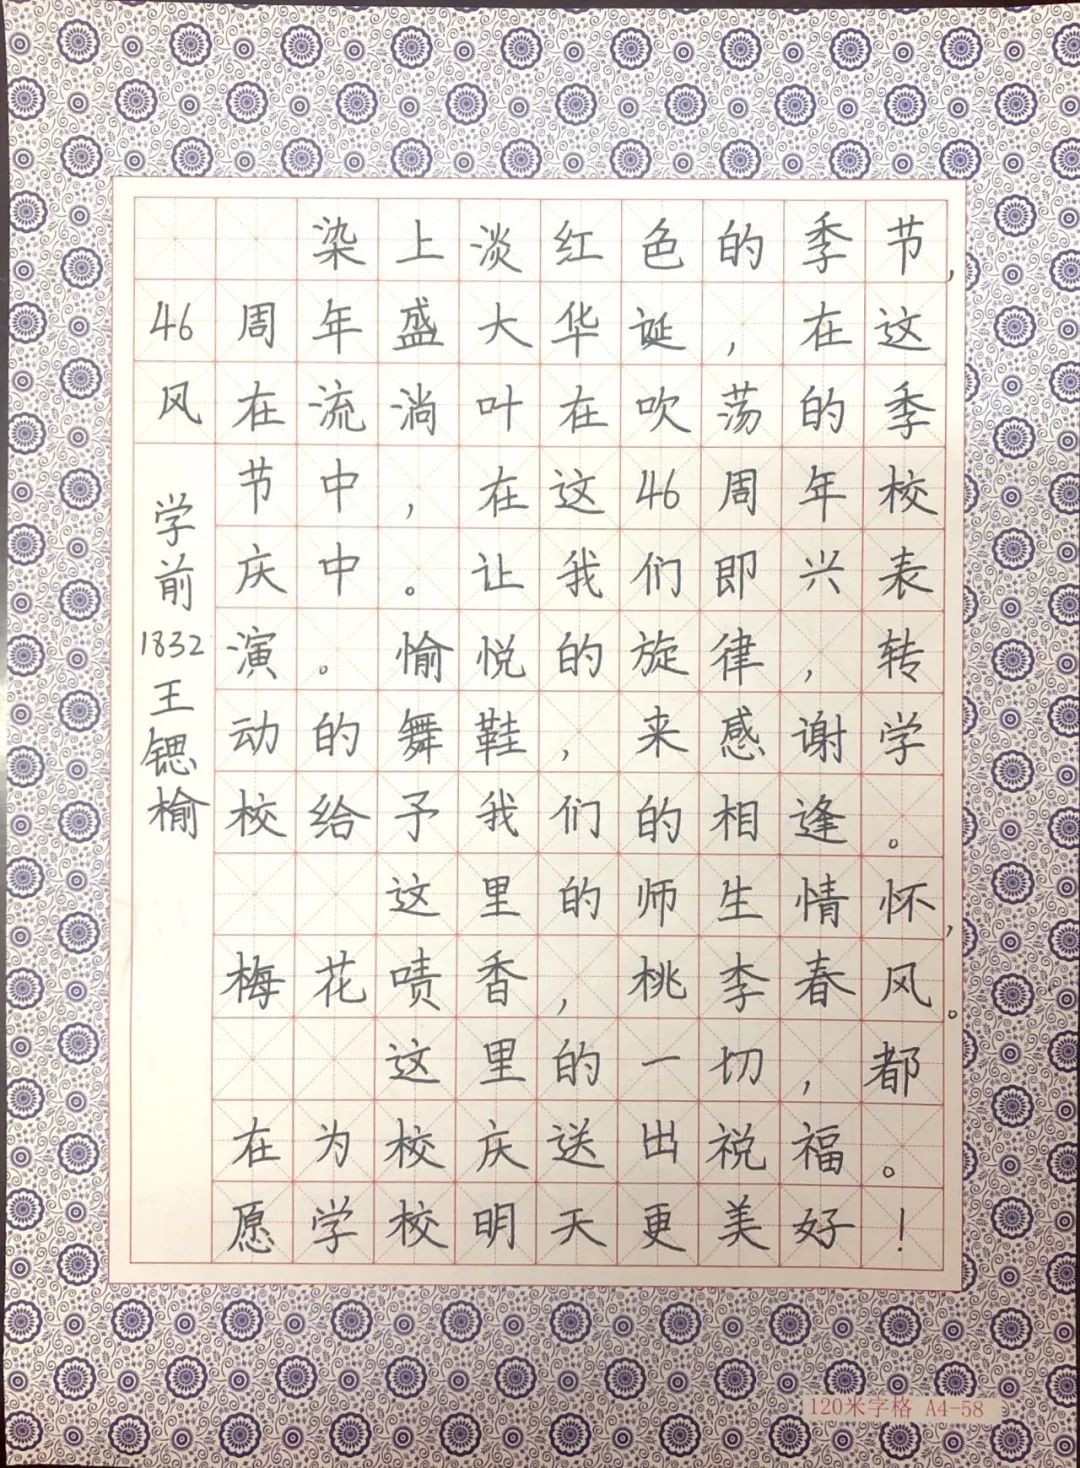 染上淡红色的季节,
46周年盛大华诞,在这
风在流淌叶在吹荡的季
节中,在这46周年校
庆中。让我们即兴表
演。愉悦的旋律,转
动的舞鞋,来感谢学
校给予我们的相逢。
这里的师生情怀,
梅花啧香,桃李春风。
这里的一切,都
在为校庆送出祝福。
愿学校明天更美好!
学前1832王锶榆
120米字格 A4-58